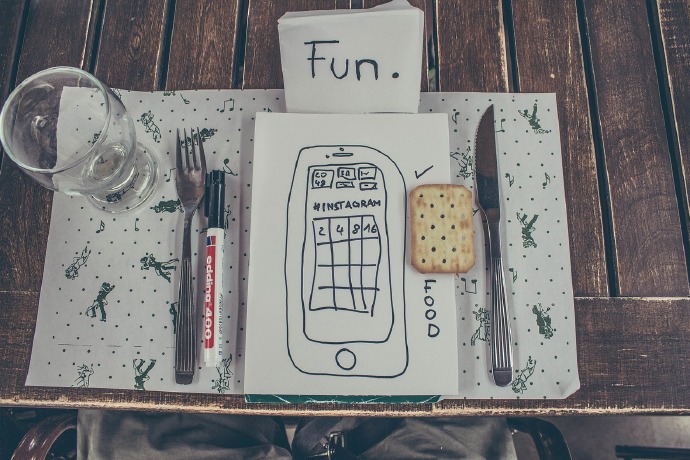 Fun.
#INSTAGRAM
2 4 8 16
FOOD
edding 400